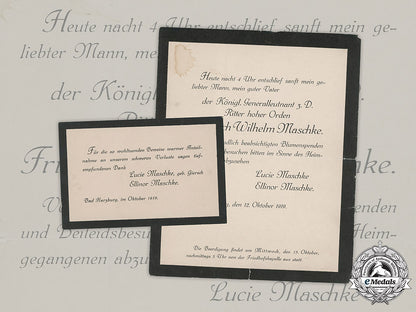 Heute nacht 4 Uhr entschlief sanft mein ge-
liebter Mann, mein
der Königl.
Frie
und Beileidsbesu
gegangenen abzu
Lucie Maschke
schke.
Heim-
Heute nacht 4 Uhr entschlief sanft mein ge-
liebter Mann, mein guter Vater
der Königl. Generalleutnant z. D.
Ritter hoher Orden
ch Wilhelm Maschke.
dlich beabsichtigten Blumenspenden
besuchen bitten im Sinne des Heim-
bzusehen
Lucie Maschke
Ellinor Maschke.
g, den 12. Oktober 1919.
Die Beerdigung findet am Mittwoch, den 15. Oktober,
nachmittags 3 Uhr von der Friedhofskapelle aus statt.
Für die so wohltuenden Beweise warmer Anteil-
nahme an unserem schweren Verluste sagen tief-
empfundenen Dank
Lucie Maschke, geb. Giersch
Ellinor Maschke.
Bad Harzburg, im Oktober 1919.
eMedals